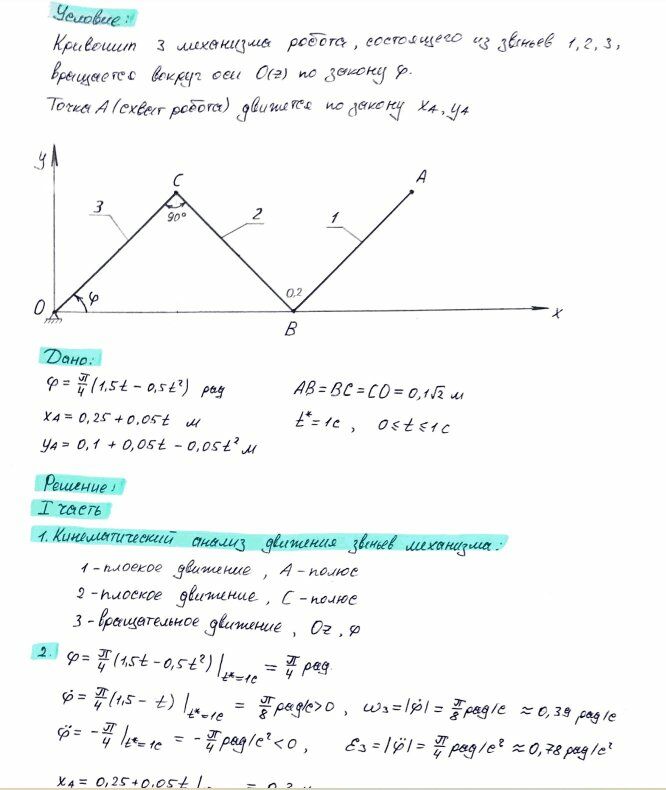 Условие:
Кривошип 3 механизма робота, состоящего из звеньев 1, 2, 3,
вращается вокруг оси O(z) по закону φ.
Точка A (схват робота) движется по закону xA, yA
y
C
A
3
90°
2
1
φ
0,2
O
B
x
Дано:
φ = π/4 (1,5t − 0,5t²) рад
AB = BC = CO = 0,1√2 м
xA = 0,25 + 0,05t м
t* = 1c , 0 ≤ t ≤ 1c
yA = 0,1 + 0,05t − 0,05t² м
Решение:
I часть
1. Кинематический анализ движения звеньев механизма:
1 - плоское движение , A - полюс
2 - плоское движение , C - полюс
3 - вращательное движение , Oz , φ
2. φ = π/4 (1,5t − 0,5t²) |t*=1c = π/4 рад
φ̇ = π/4 (1,5 − t) |t*=1c = π/8 рад/c > 0 , ω3 = |φ̇| = π/8 рад/c ≈ 0,39 рад/c
φ̈ = −π/4 |t*=1c = −π/4 рад/c² < 0 , ε3 = |φ̈| = π/4 рад/c² ≈ 0,78 рад/c²
xA = 0,25 + 0,05t